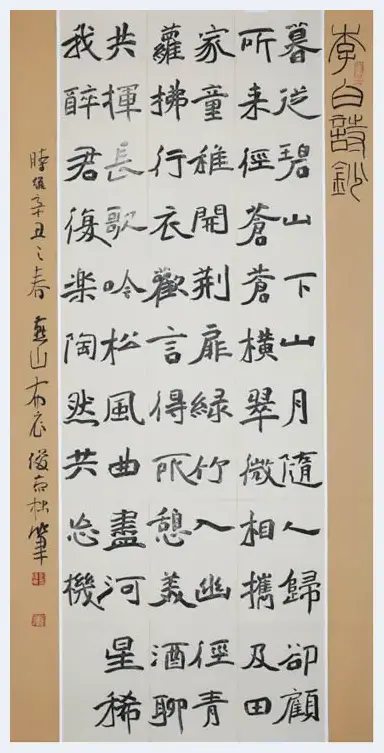 李白詩鈔
暮從碧山下山月隨人歸卻顧
所来徑蒼蒼橫翠微相攜及田
家童稚開荆扉綠竹入幽徑青
蘿拂行衣歡言得所憩美酒聊
共揮長歌吟松風曲盡河星稀
我醉君復楽陶然共忘機
時維辛丑之春燕山布衣俊筆